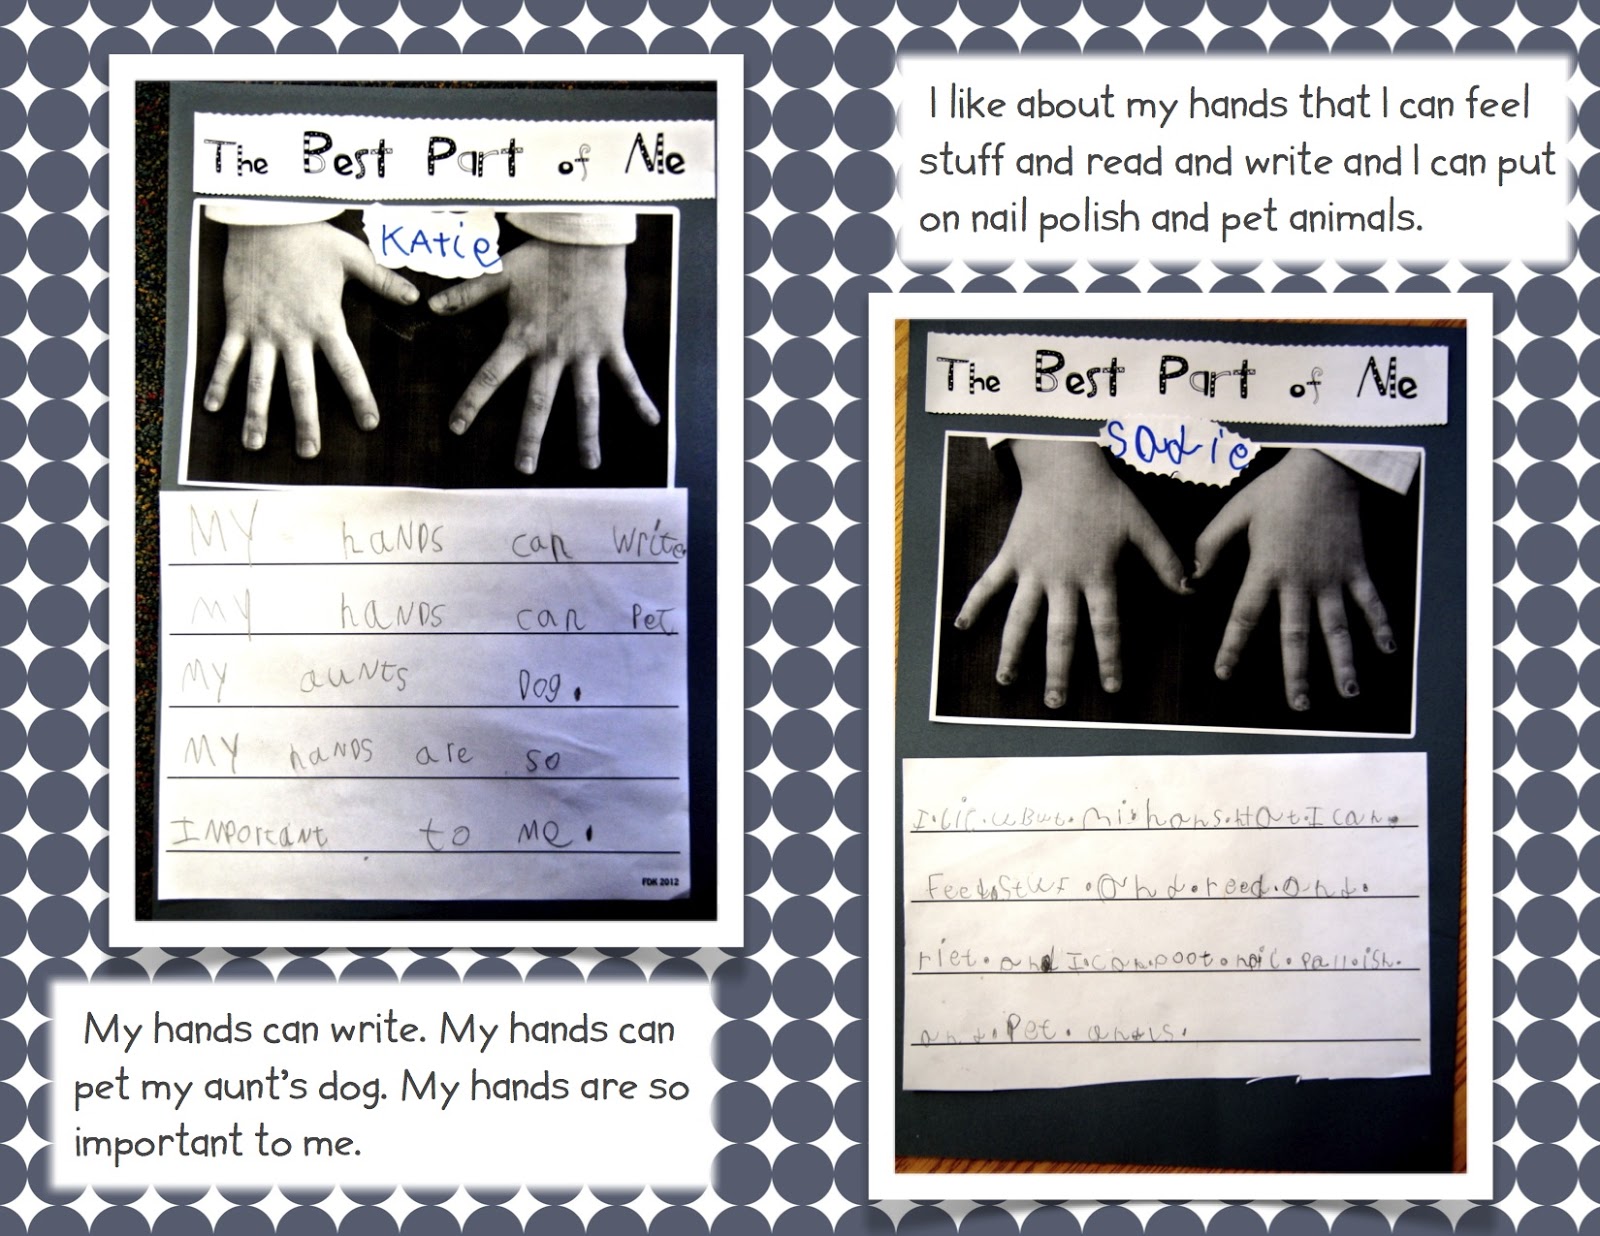 The Best Part of Me
KAtie
MY hANDS can write.
MY hANDS can Pet
MY auNts DOg.
MY hANDS are so
INPortant to Me.
FDK 2012
My hands can write. My hands can
pet my aunt's dog. My hands are so
important to me.
I like about my hands that I can feel
stuff and read and write and I can put
on nail polish and pet animals.
The Best Part of Me
Sadie
I. but. mi. hans. that. I can.
Feel. stuf. and. reed. and.
riet. and I. can. poot. nail. pallish.
and. Pet. anals.